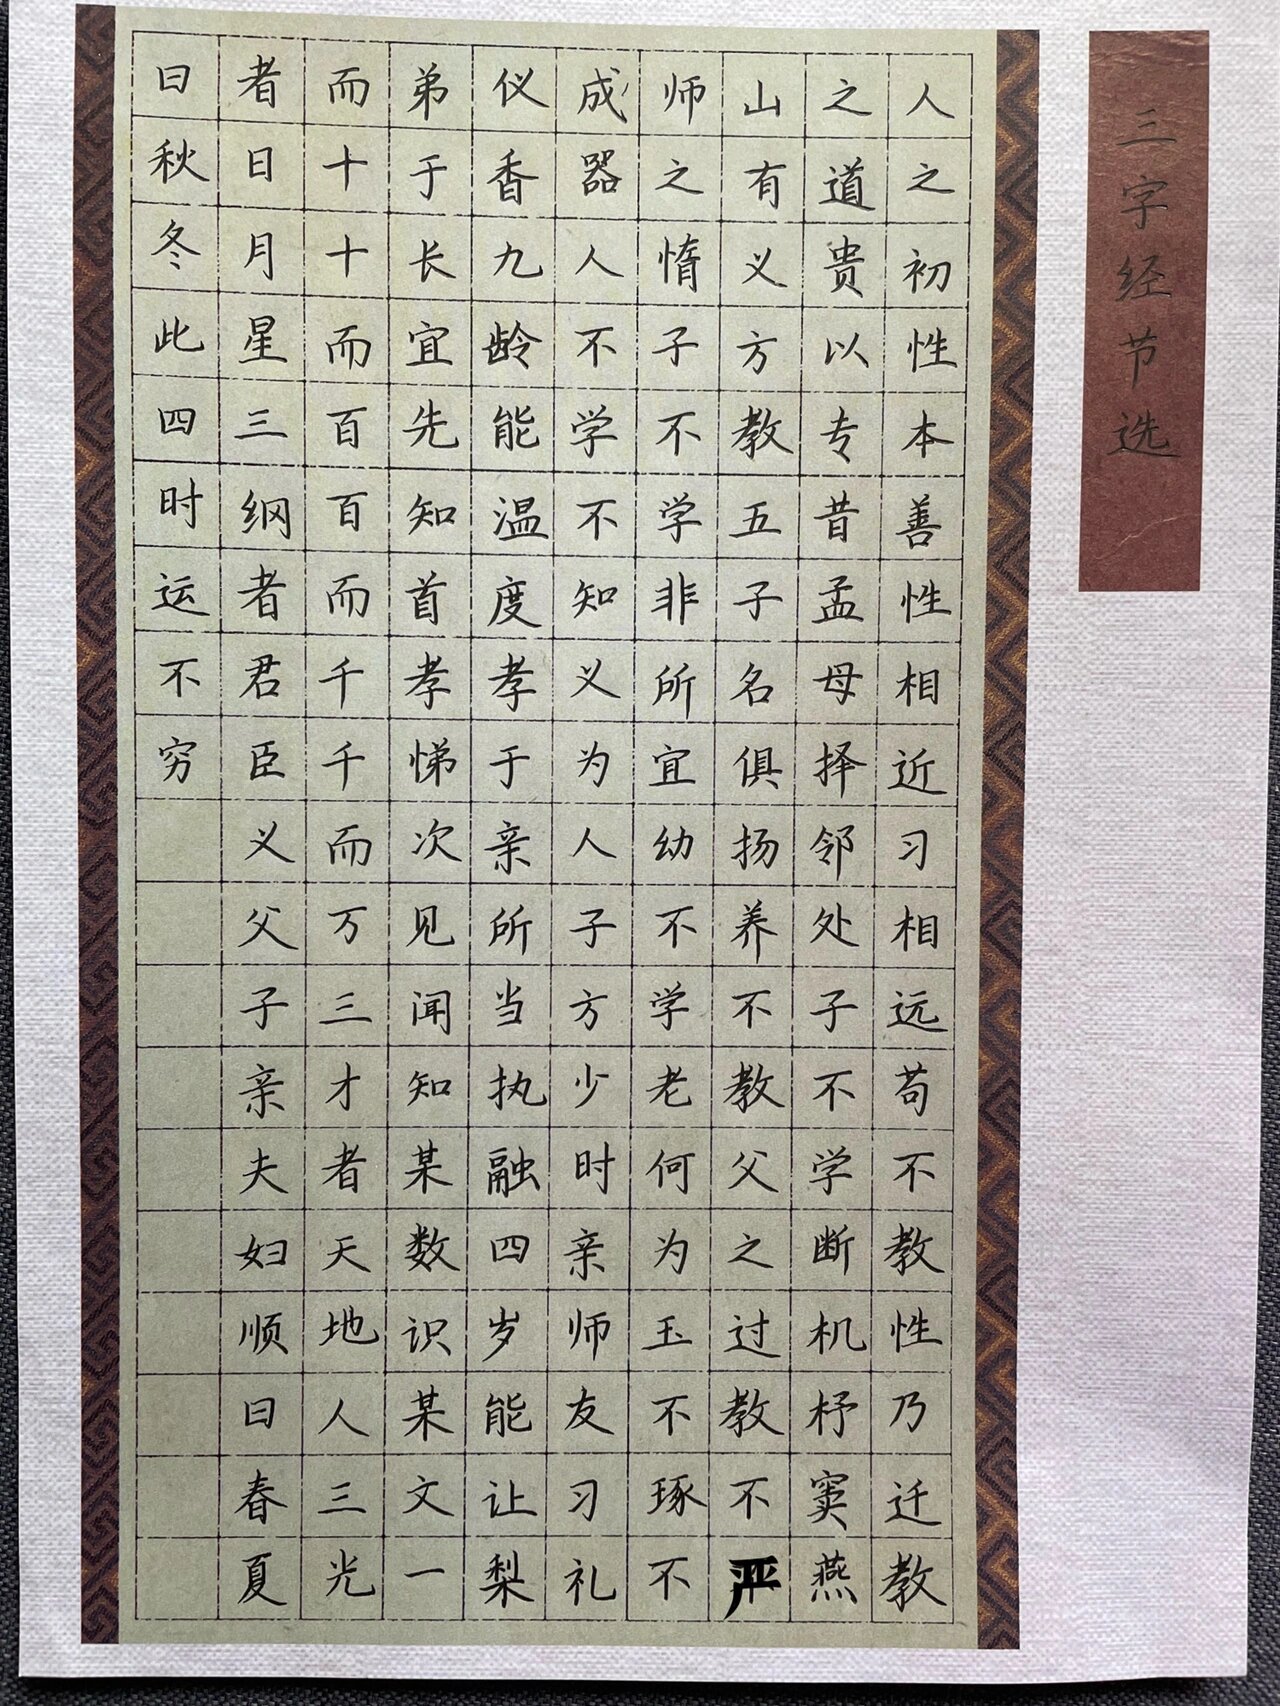 三字经节选
人之初性本善性相近习相远苟不教性乃迁教
之道贵以专昔孟母择邻处子不学断机杼窦燕
山有义方教五子名俱扬养不教父之过教不严
师之惰子不学非所宜幼不学老何为玉不琢不
成器人不学不知义为人子方少时亲师友习礼
仪香九龄能温度孝于亲所当执融四岁能让梨
弟于长宜先知首孝悌次见闻知某数识某文一
而十十而百百而千千而万三才者天地人三光
者日月星三纲者君臣义父子亲夫妇顺曰春夏
曰秋冬此四时运不穷